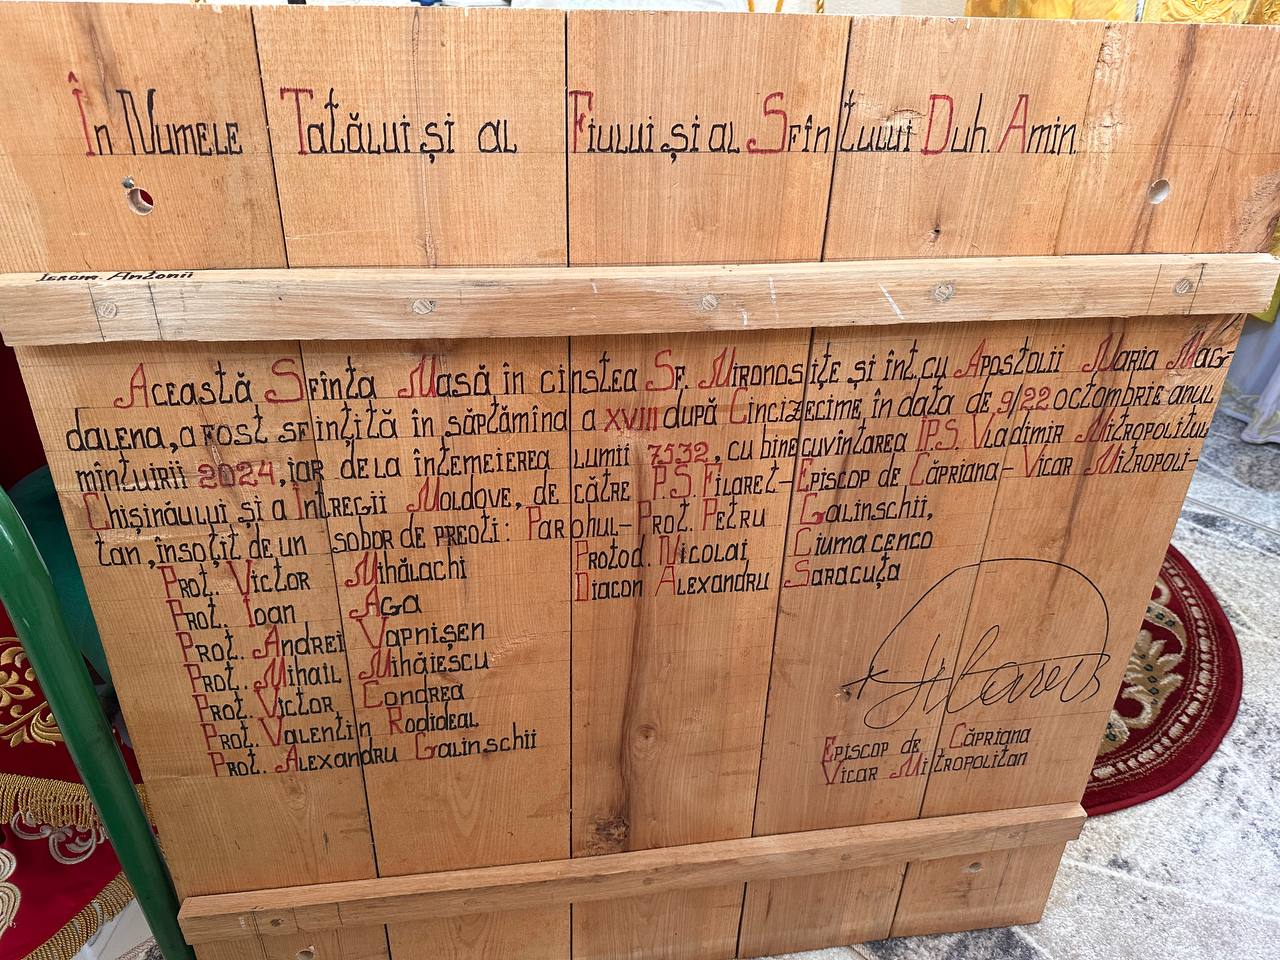 În Numele Tatălui și al Fiului și al Sfîntului Duh. Amin.
Ierom. Antonii
Această Sfînta Masă în cinstea Sf. Mironosițe și înt. cu Apostolii Maria Mag-
dalena, a fost sfințită în săptămîna a XVIII după Cincizecime în data de 9/22 octombrie anul
mîntuirii 2024, iar de la întemeierea lumii 7532, cu binecuvîntarea IPS. Vladimir Mitropolitul
Chișinăului și a Întregii Moldove, de către P.S. Filaret - Episcop de Căpriana - Vicar Mitropoli-
tan, însoțit de un sobor de preoti: Parohul - Prot. Petru Galinschii,
Prot. Victor Mihălachi
Prot. Ioan Aga
Prot. Andrei Vapnișen
Prot. Mihail Mihăiescu
Prot. Victor Condrea
Prot. Valentin Rodideal
Prot. Alexandru Galinschii
Protod. Nicolai Ciumacenco
Diacon Alexandru Saracuța
+ Filaret
Episcop de Căpriana
Vicar Mitropolitan